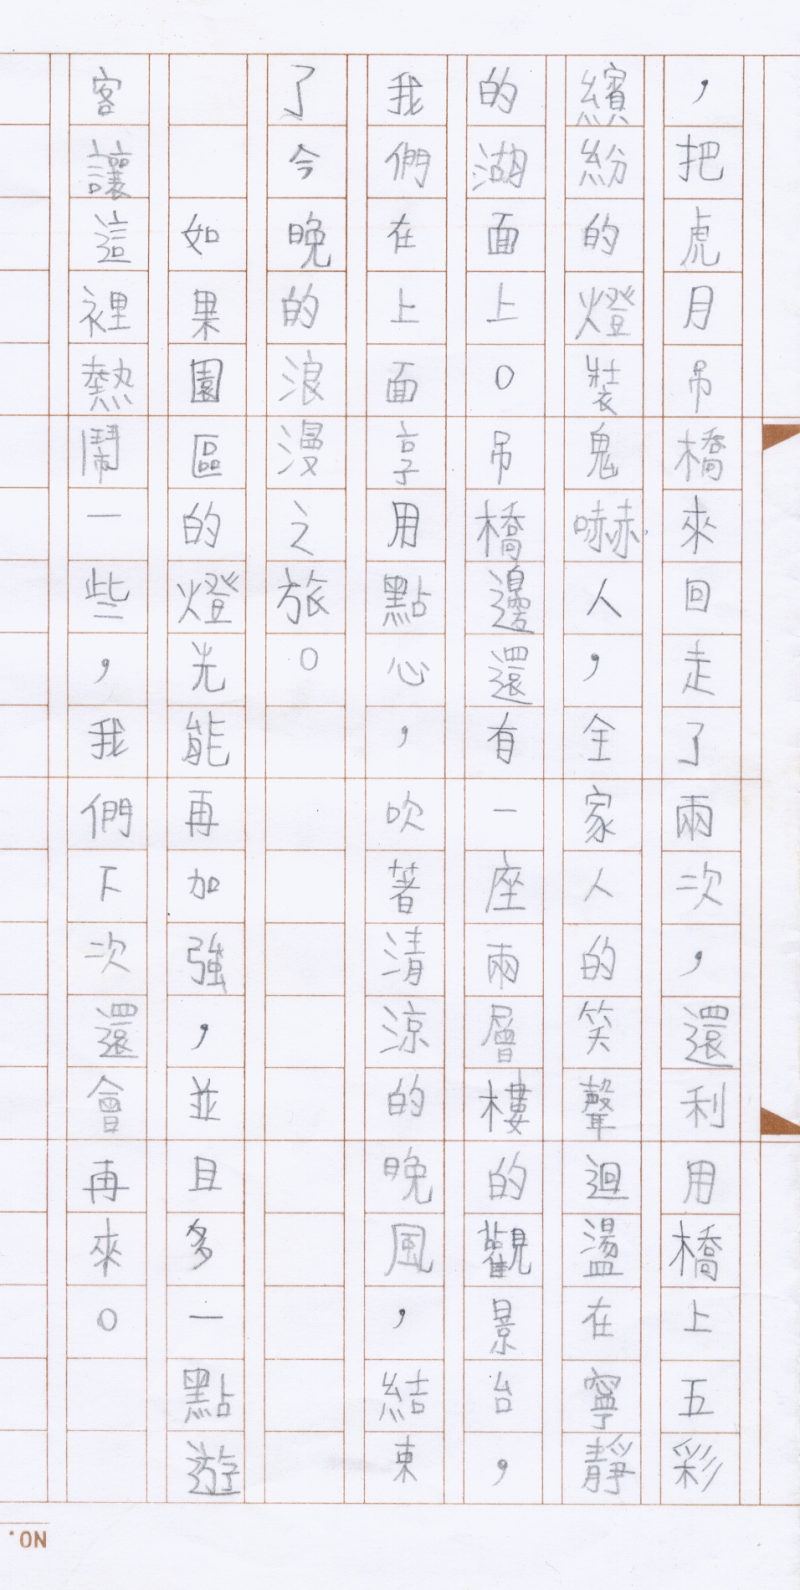 ，把虎月吊橋來回走了兩次，還利用橋上五彩
繽紛的燈裝鬼嚇人，全家人的笑聲迴盪在寧靜
的湖面上。吊橋邊還有一座兩層樓的觀景台，
我們在上面享用點心，吹著清涼的晚風，結束
了今晚的浪漫之旅。
如果園區的燈光能再加強，並且多一點遊
客讓這裡熱鬧一些，我們下次還會再來。
NO.